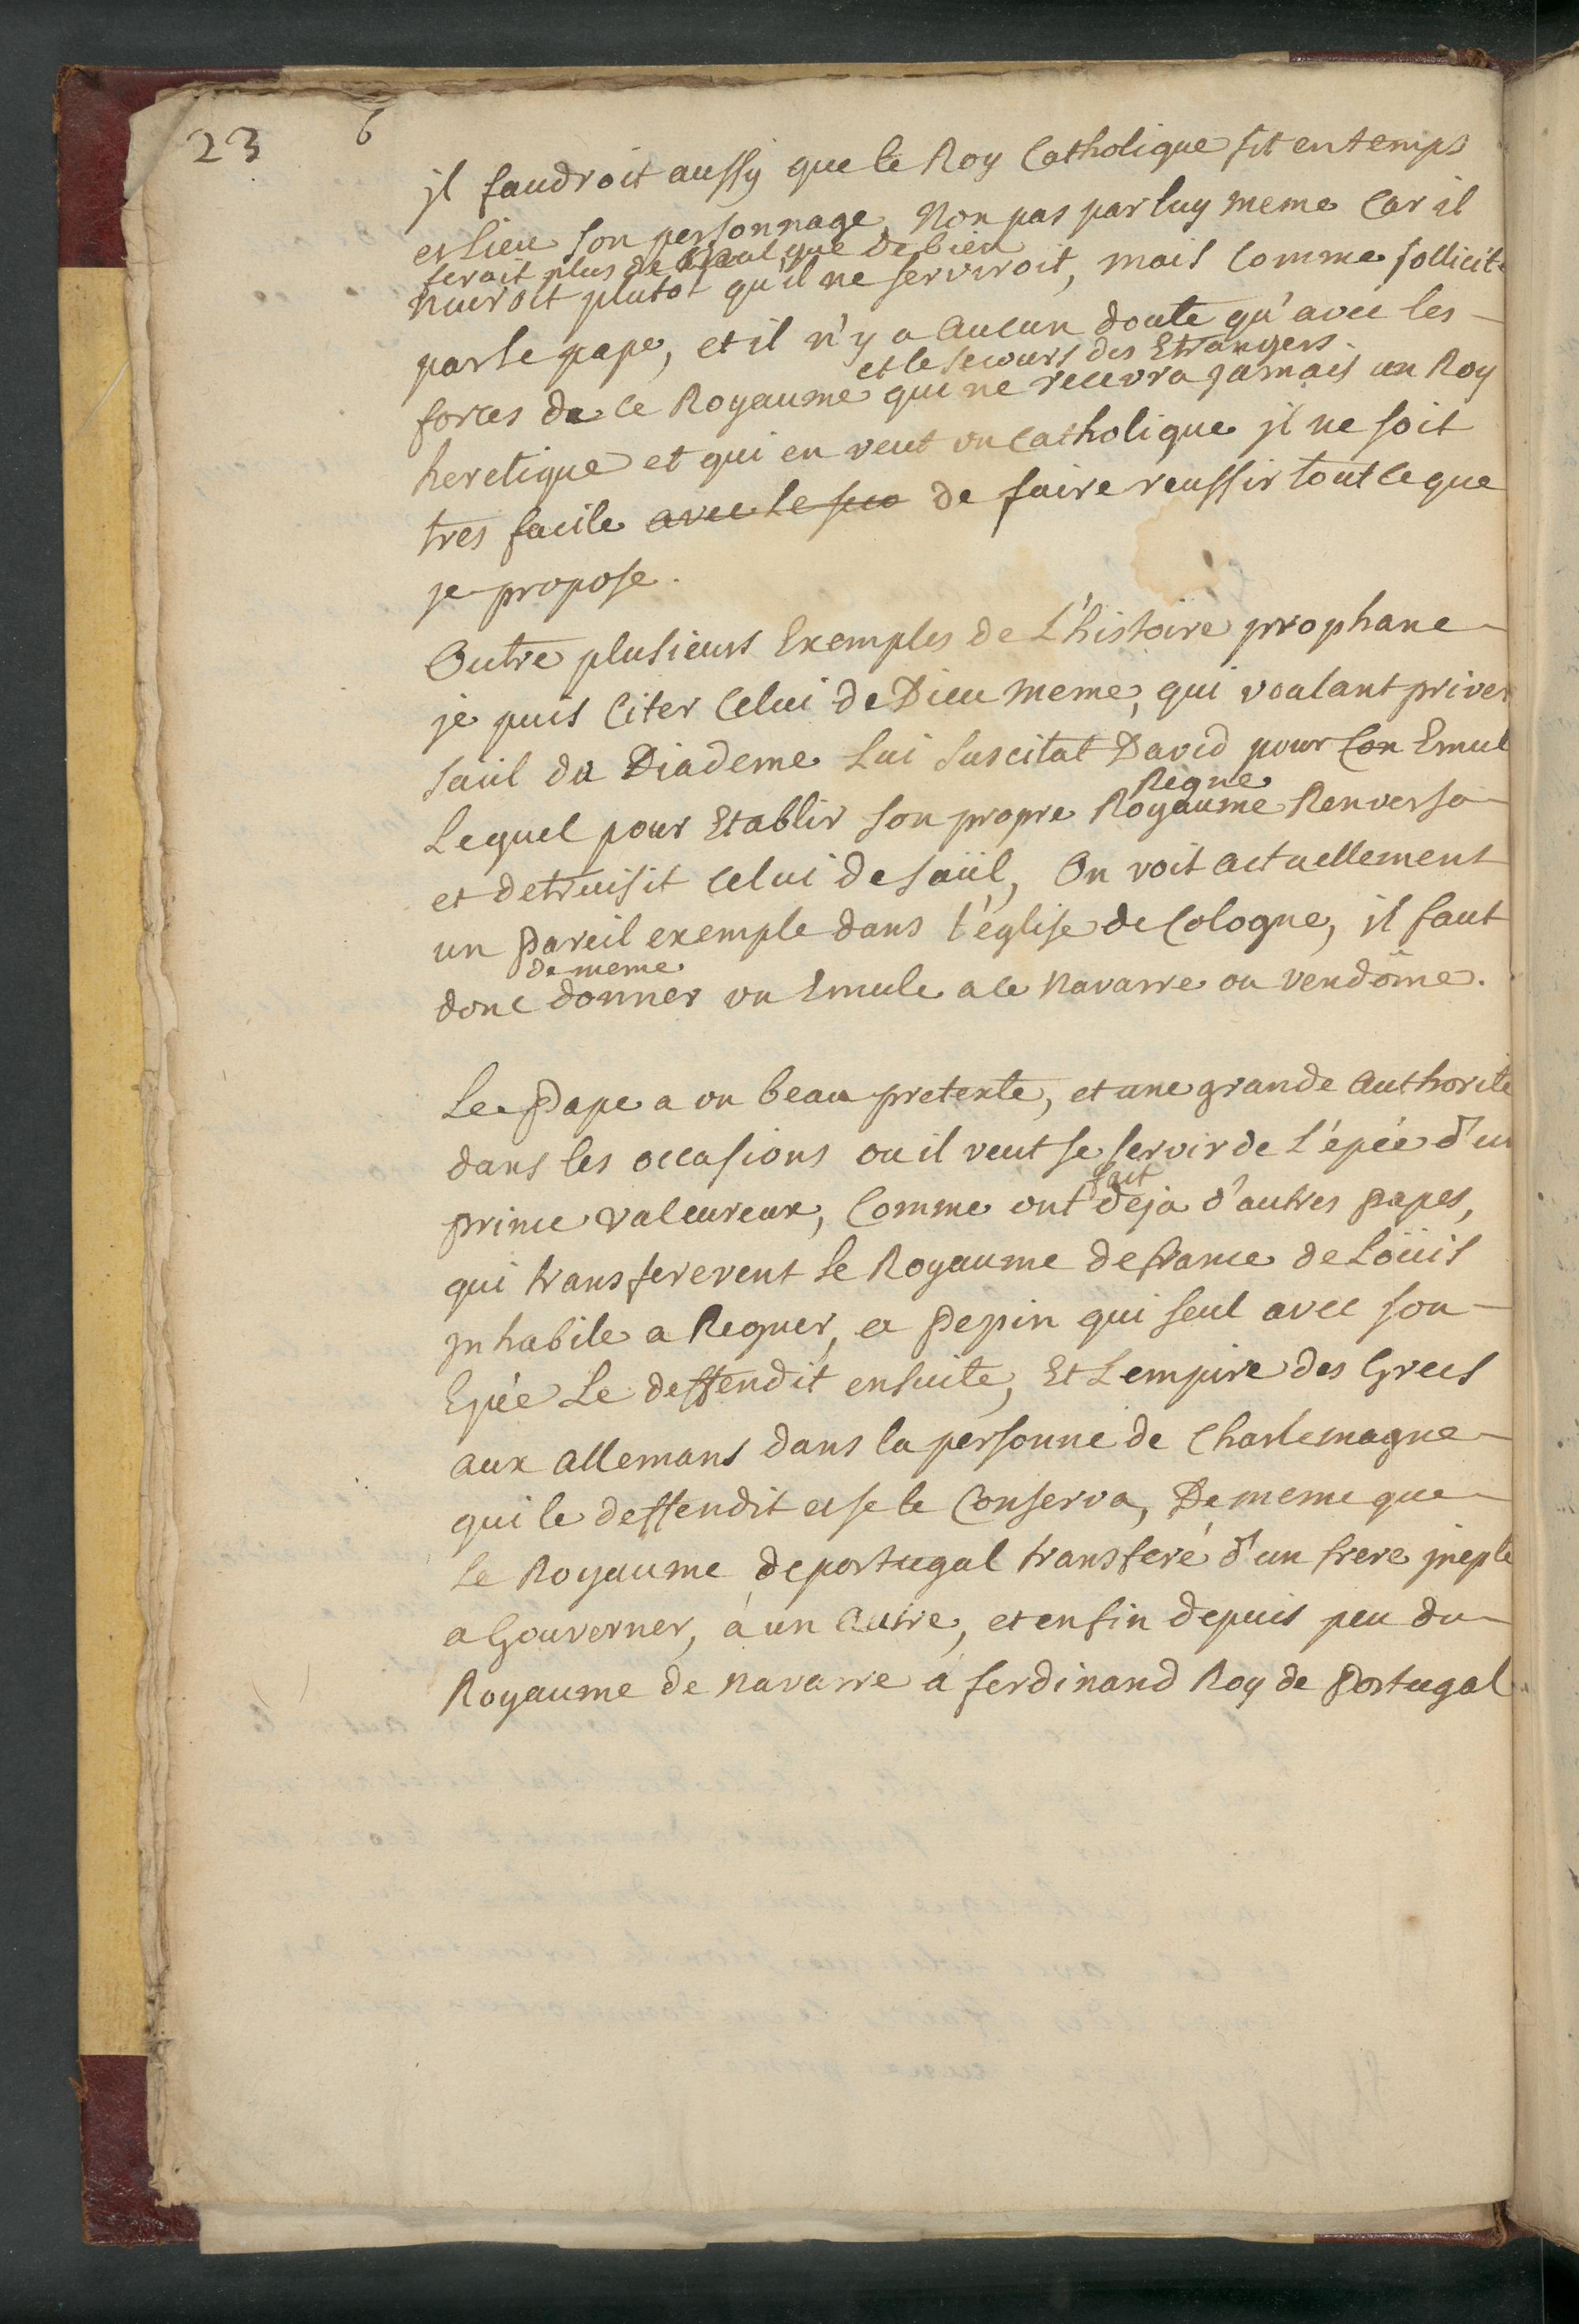 23 6
jl faudroit aussy que le Roy Catholique fit en temps
et lieu son personnage, Non pas par luy meme Car il
feroit plus de mal que de bien
nuiroit plutot qu'il ne serviroit, mais Comme sollicité
par le pape, et il n'y a aucun doute qu'avec les
et le secours des Etrangers
forces de ce Royaume qui ne recevra jamais un Roy
heretique et qui en veut un Catholique jl ne soit
tres facile avec le seco de faire reussir tout ce que
je propose.
Outre plusieurs Exemples de L'histoire prophane
je puis Citer Celui de Dieu meme, qui voulant priver
saül du Diademe Lui suscitat David pour son Emul
Regne
Lequel pour Etablir son propre Royaume Renversa
et detruisit Celui de saül, On voit actuellement
un pareil exemple dans l'église de Cologne, il faut
de meme
donc donner un Emule a ce Navarre ou vendôme.
Le Pape a un beau pretexte, et une grande Authorité
dans les occasions ou il veut se servir de L'épée d'un
fait
prince valeureux, Comme ont deja d'autres papes,
qui transfererent le Royaume de france de Loüis
jnhabile a Regner, a Pepin qui seul avec son
Epée Le deffendit ensuite, Et L'empire des Grecs
aux allemans dans la personne de Charlemagne
qui le deffendit et se le Conserva, De meme que
Le Royaume de portugal transferé d'un frere jnepte
a Gouverner, à un Autre, et enfin depuis peu du
Royaume de navarre a ferdinand Roy de Portugal